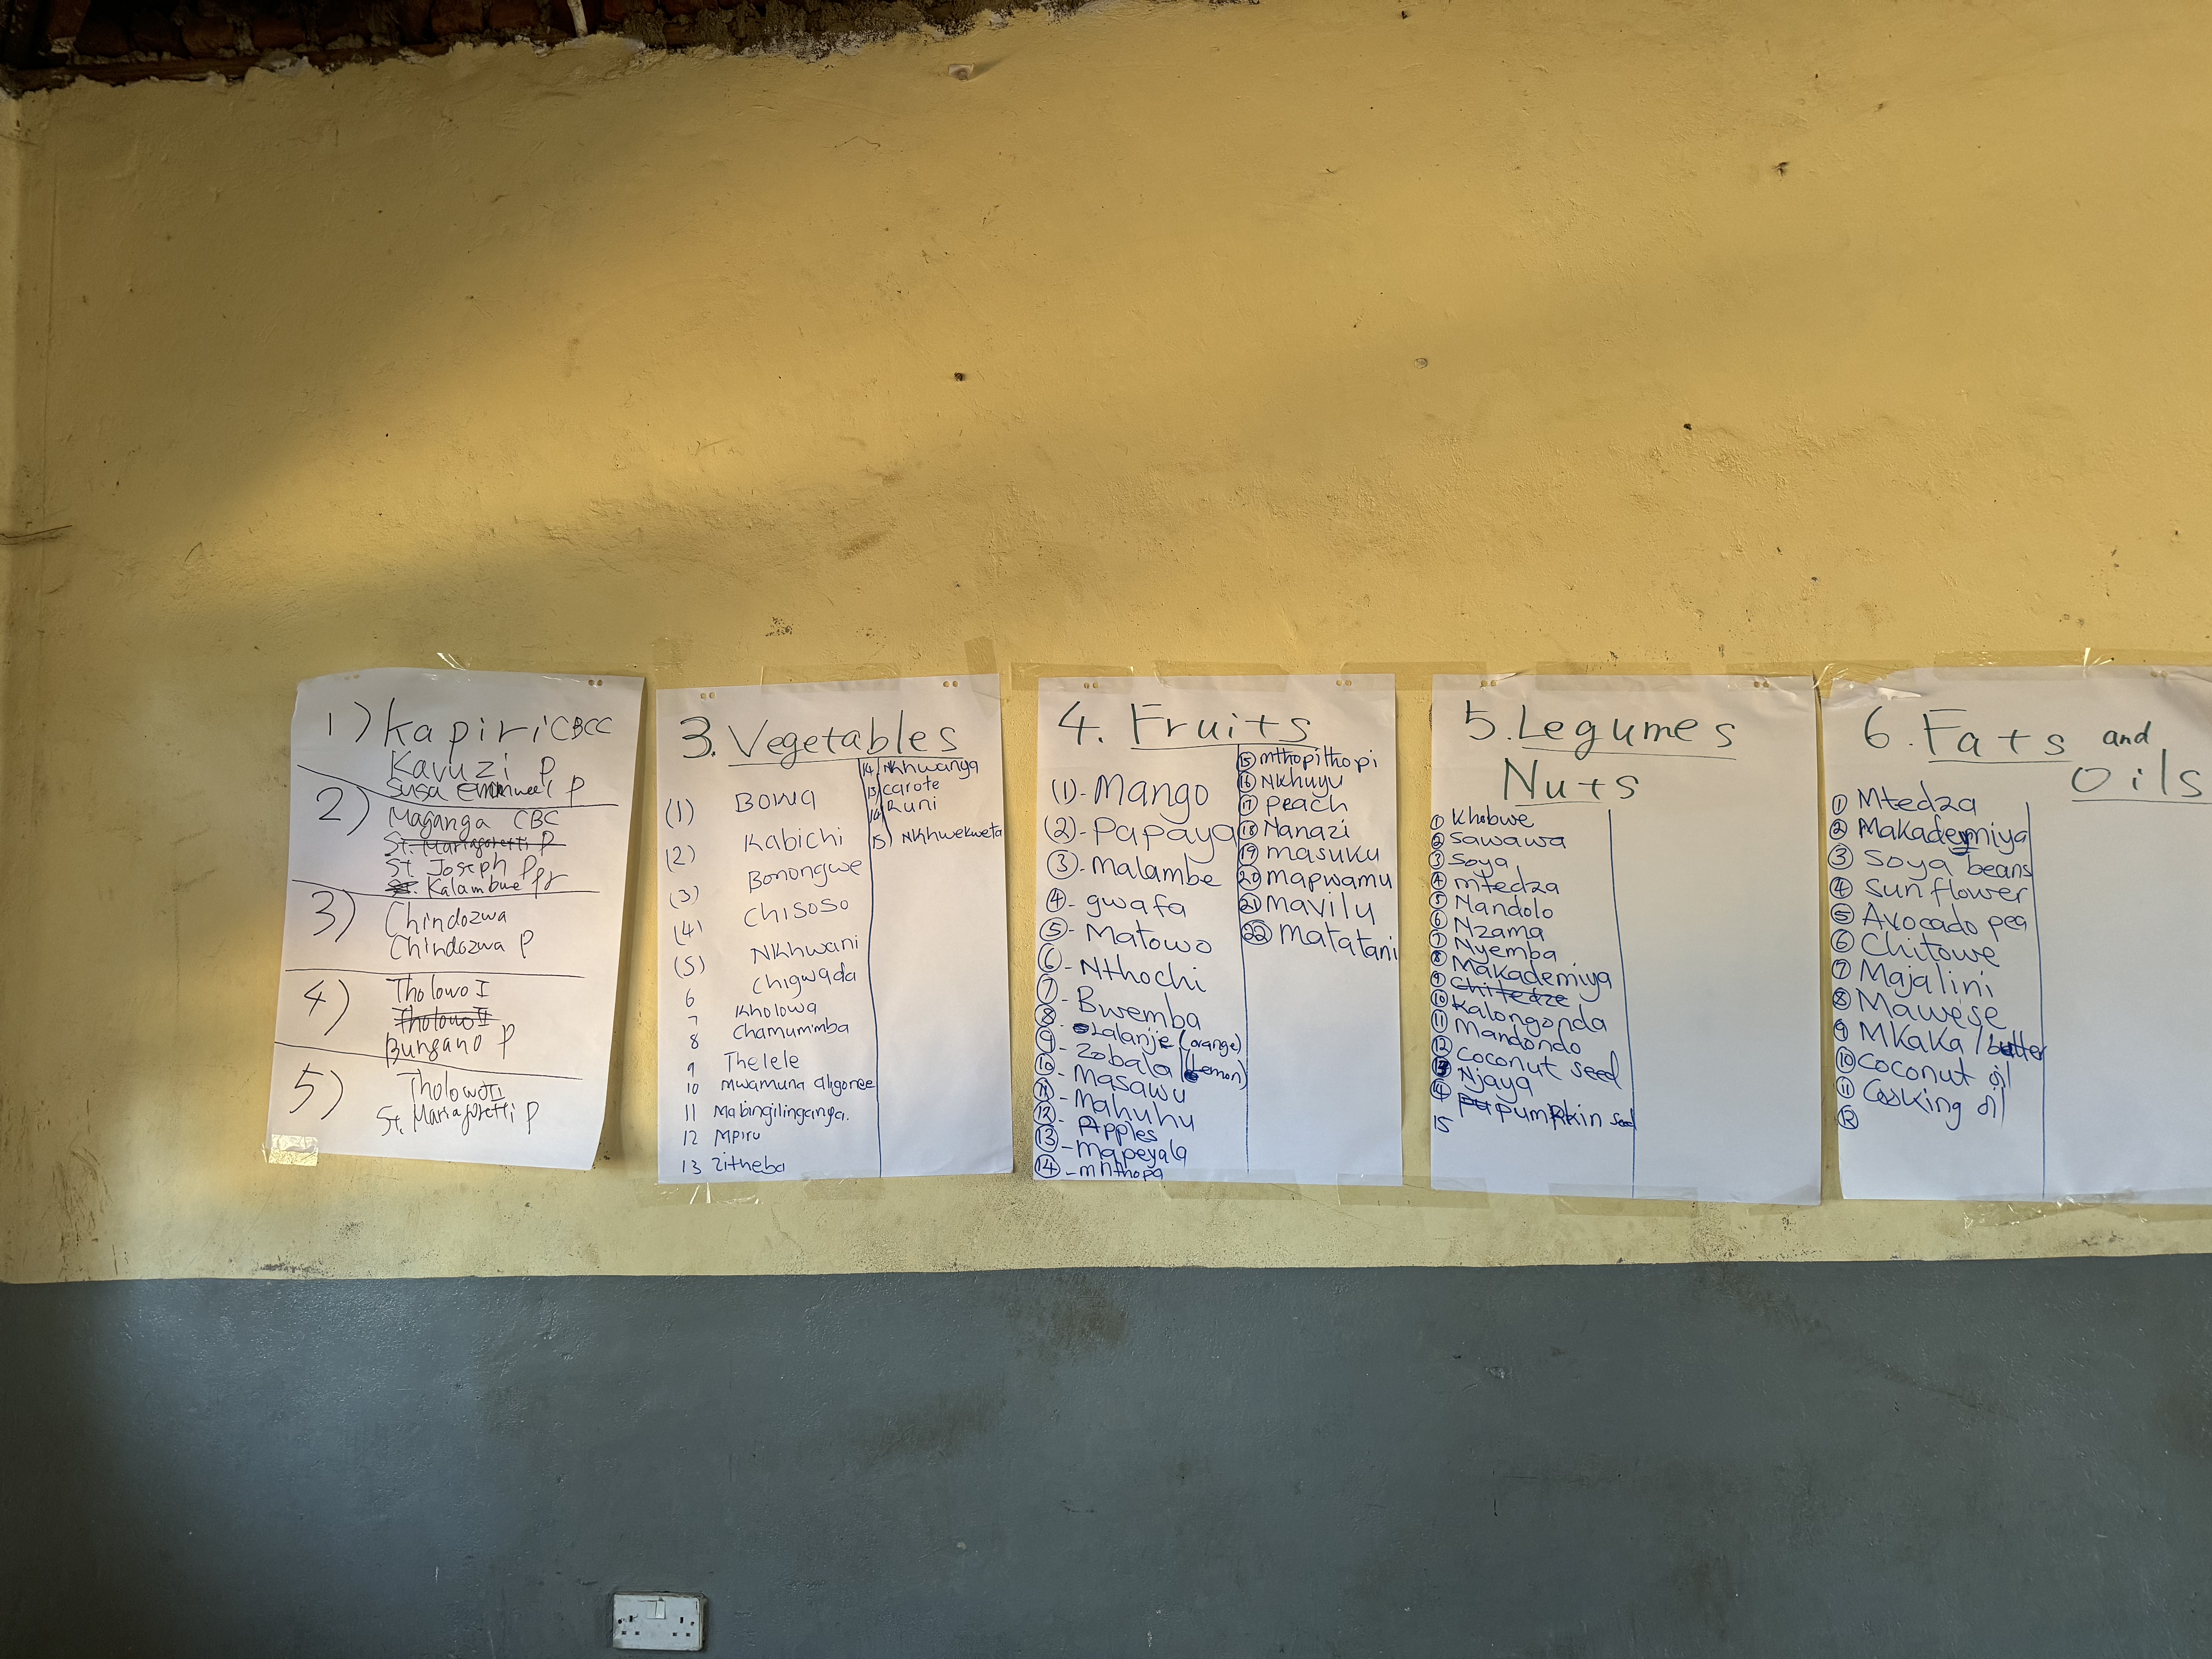 1) Kapiri CBCC
Kavuzi P
Susa Emmanuel P
2) Maganga CBC
St. Mariagoretti P
St. Joseph P
Kalambwe pr
3) Chindozwa
Chindozwa P
4) Tholowo I
Tholowo II
Bungano P
5) Tholowo II
St. Mariagoretti P
3. Vegetables
(1) Bowa
(2) Kabichi
(3) Bonongwe
(4) Chisoso
(5) Nkhwani
6 Chigwada
7 Kholowa
8 Chamumimba
9 Thelele
10 Mwamuna aligonee
11 Mabingilinganya.
12 Mpiru
13 Zitheba
14 Nkhwanya
13 carote
14 Runi
15) Nkhwekweta
4. Fruits
(1)- Mango
(2)- Papaya
(3)- Malambe
4- gwafa
5- Matowo
6- Nthochi
7- Bwemba
8- Lalanje (orange)
9- Zobala (Lemon)
10- Masawu
11- Mahuhu
12- Apples
13- Mapeyala
14- mnthopa
15 mthopithopi
16 Nkhuyu
17 peach
18 Nanazi
19 masuku
20 mapwamu
21 mavilu
22 matatani
5. Legumes
Nuts
1 Khobwe
2 Sawawa
3 Soya
4 mtedza
5 Nandolo
6 Nzama
7 Nyemba
8 Makademiya
9 Chitedze
10 Kalongonda
11 Mandondo
12 Coconut seed
13 Njaya
14 pumpkin seed
15
6. Fats and
Oils
1 Mtedza
2 Makademiya
3 Soya beans
4 Sunflower
5 Avocado pea
6 Chitowe
7 Majalini
8 Mawese
9 Mkaka / butter
10 Coconut oil
11 Cooking oil
12